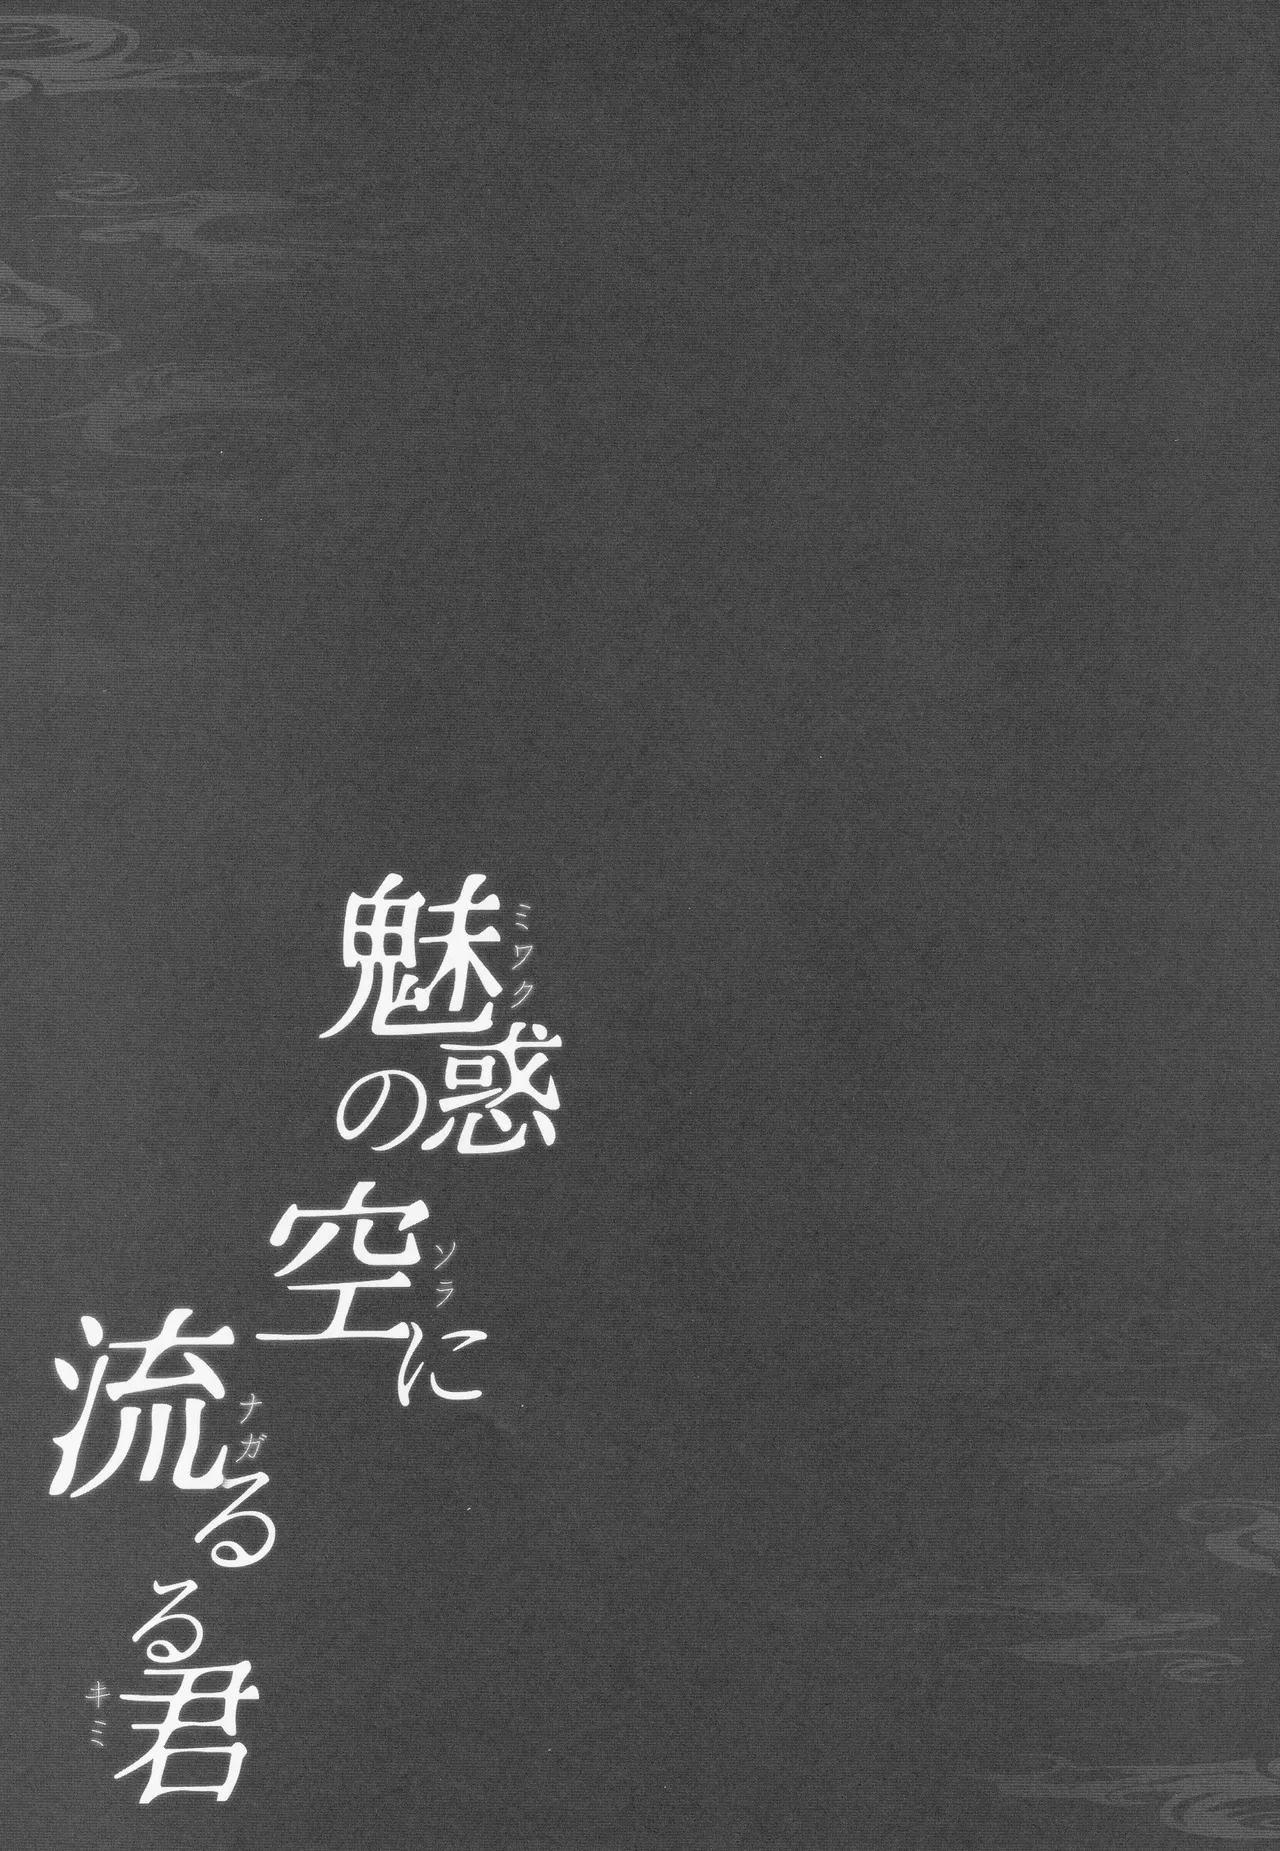 魅惑の
ミワク
空に
ソラ
流るる
ナガ
君
キミ